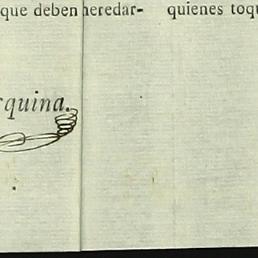 que deben heredar- quienes toqu
rquina.